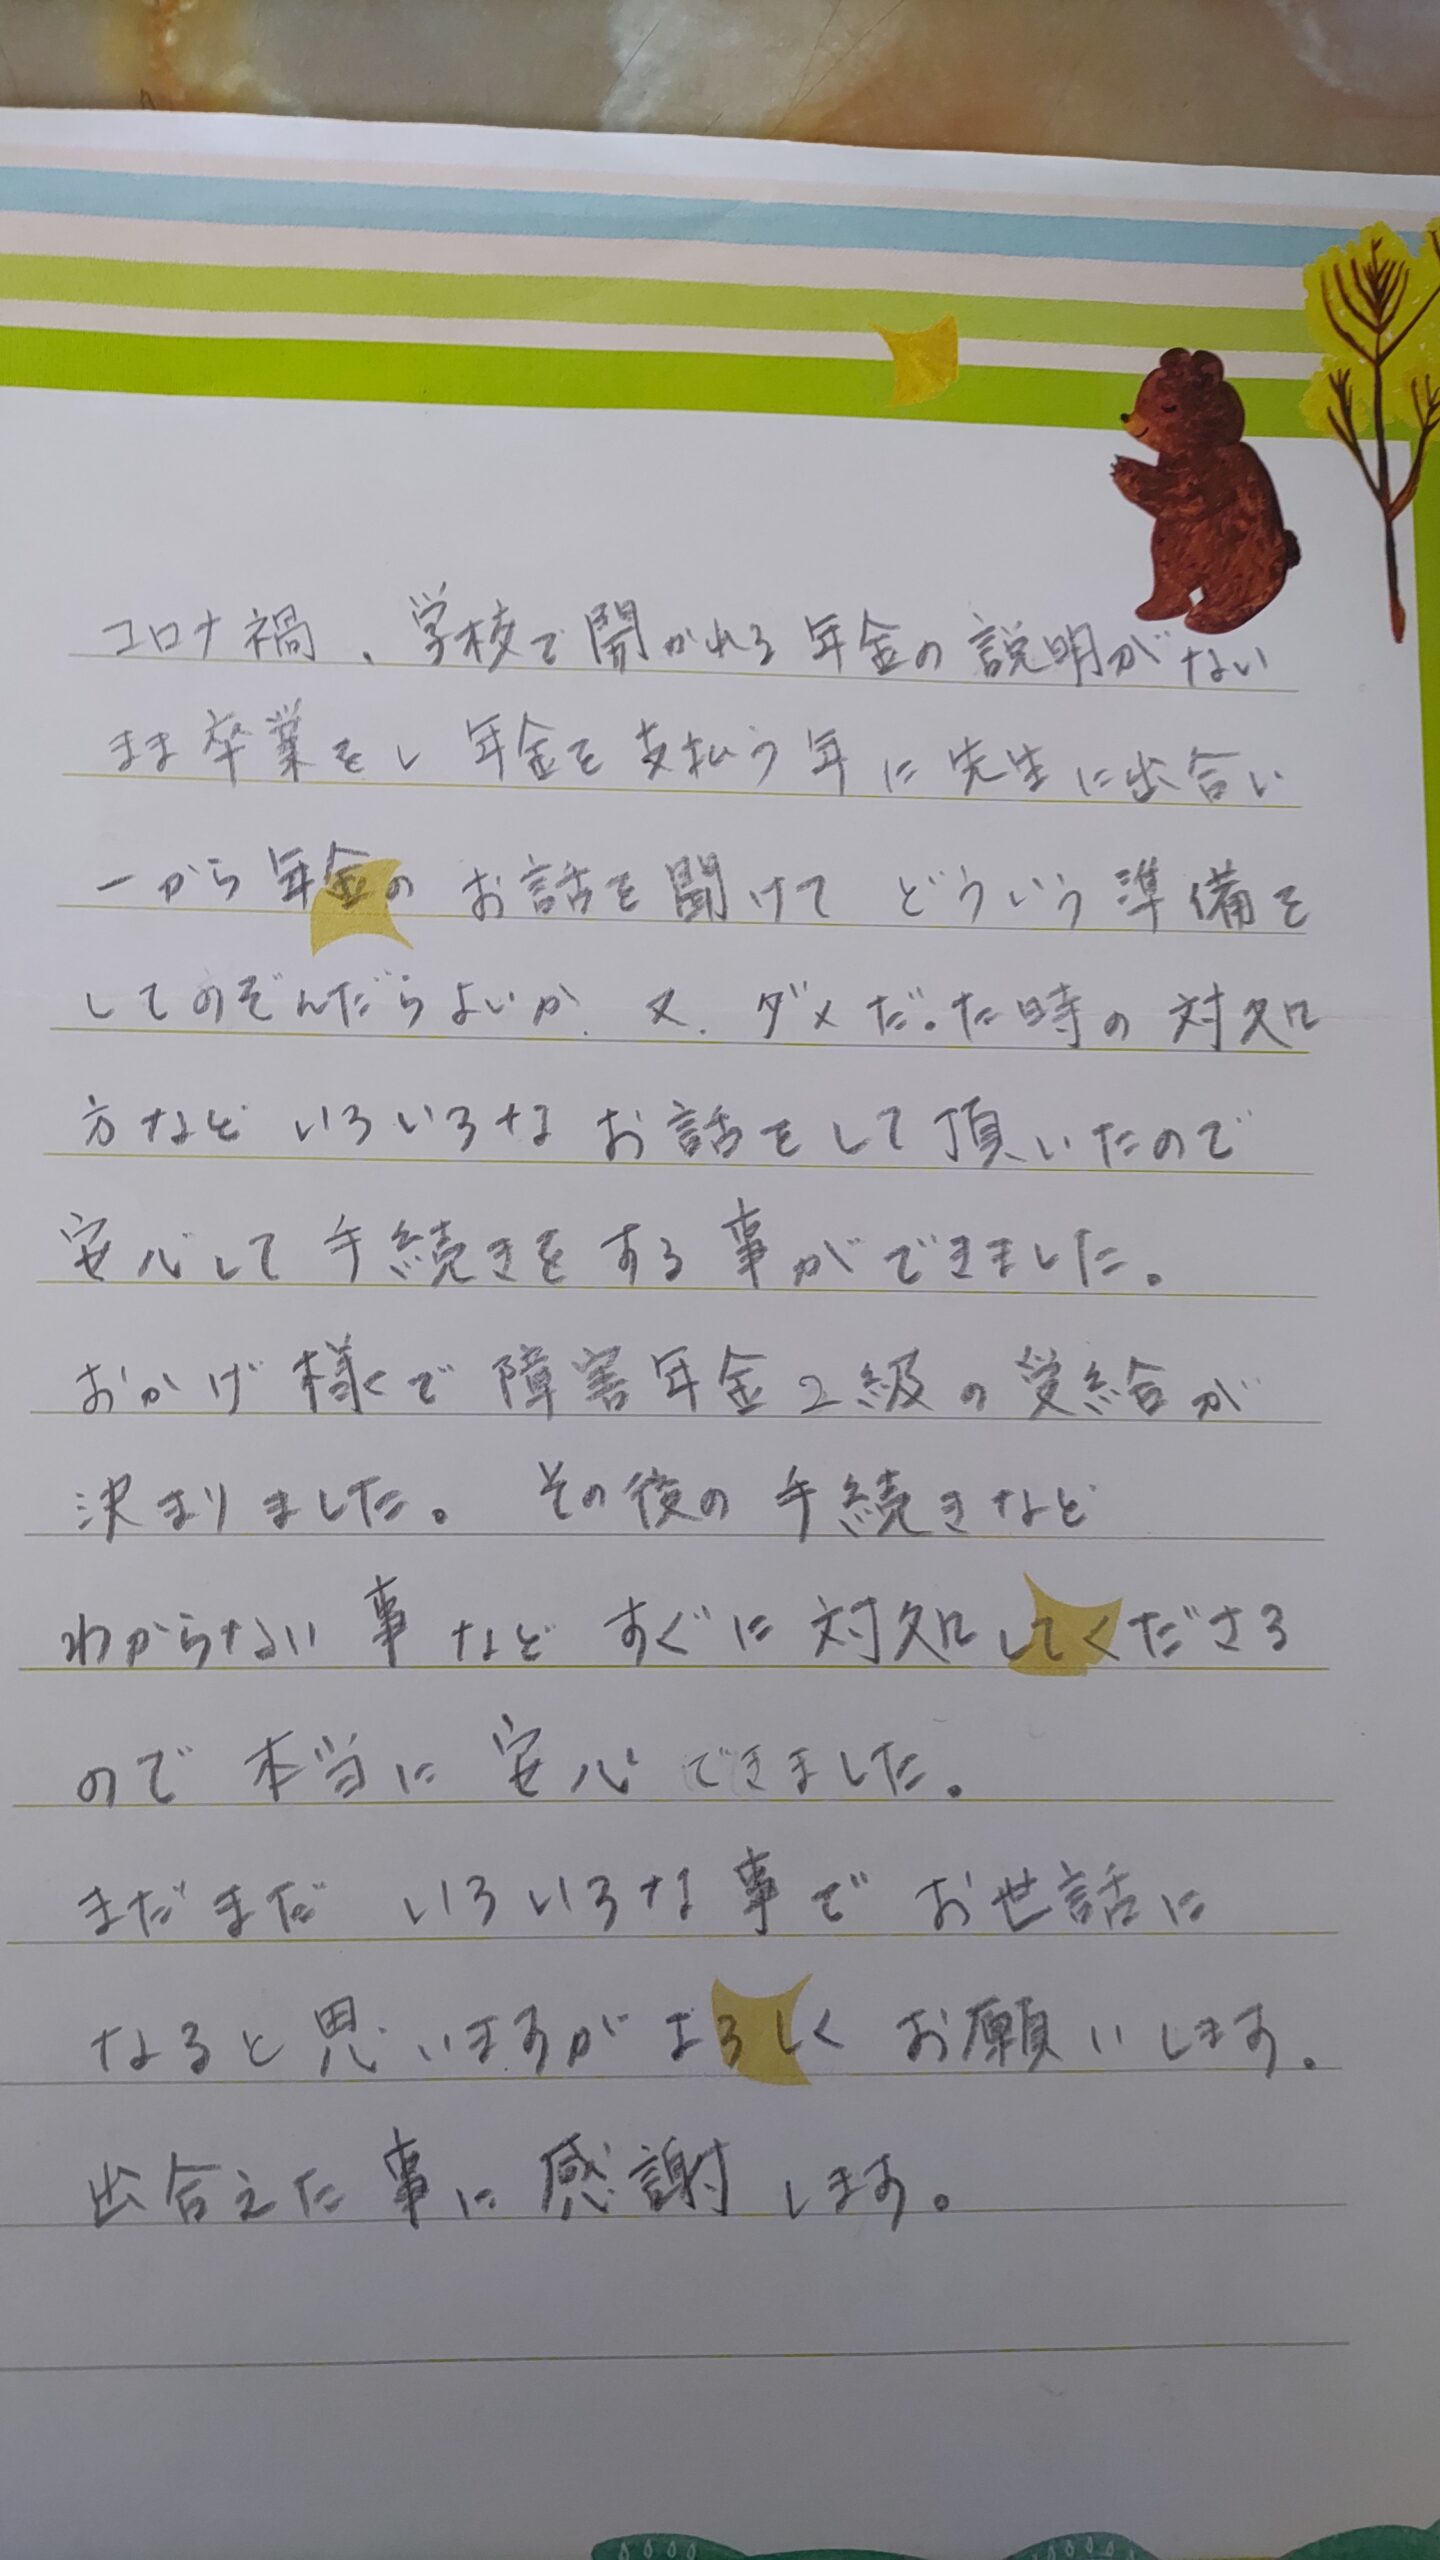 コロナ禍、学校で開かれる年金の説明がない
まま卒業をし年金を支払う年に先生に出合い
一から年金のお話を聞けてどういう準備を
してのぞんだらよいか、又、ダメだった時の対処
方などいろいろなお話をして頂いたので
安心して手続きをする事ができました。
おかげ様で障害年金2級の受給が
決まりました。その後の手続きなど
わからない事などすぐに対処してくださる
ので本当に安心できました。
まだまだいろいろな事でお世話に
なると思いますがよろしくお願いします。
出合えた事に感謝します。